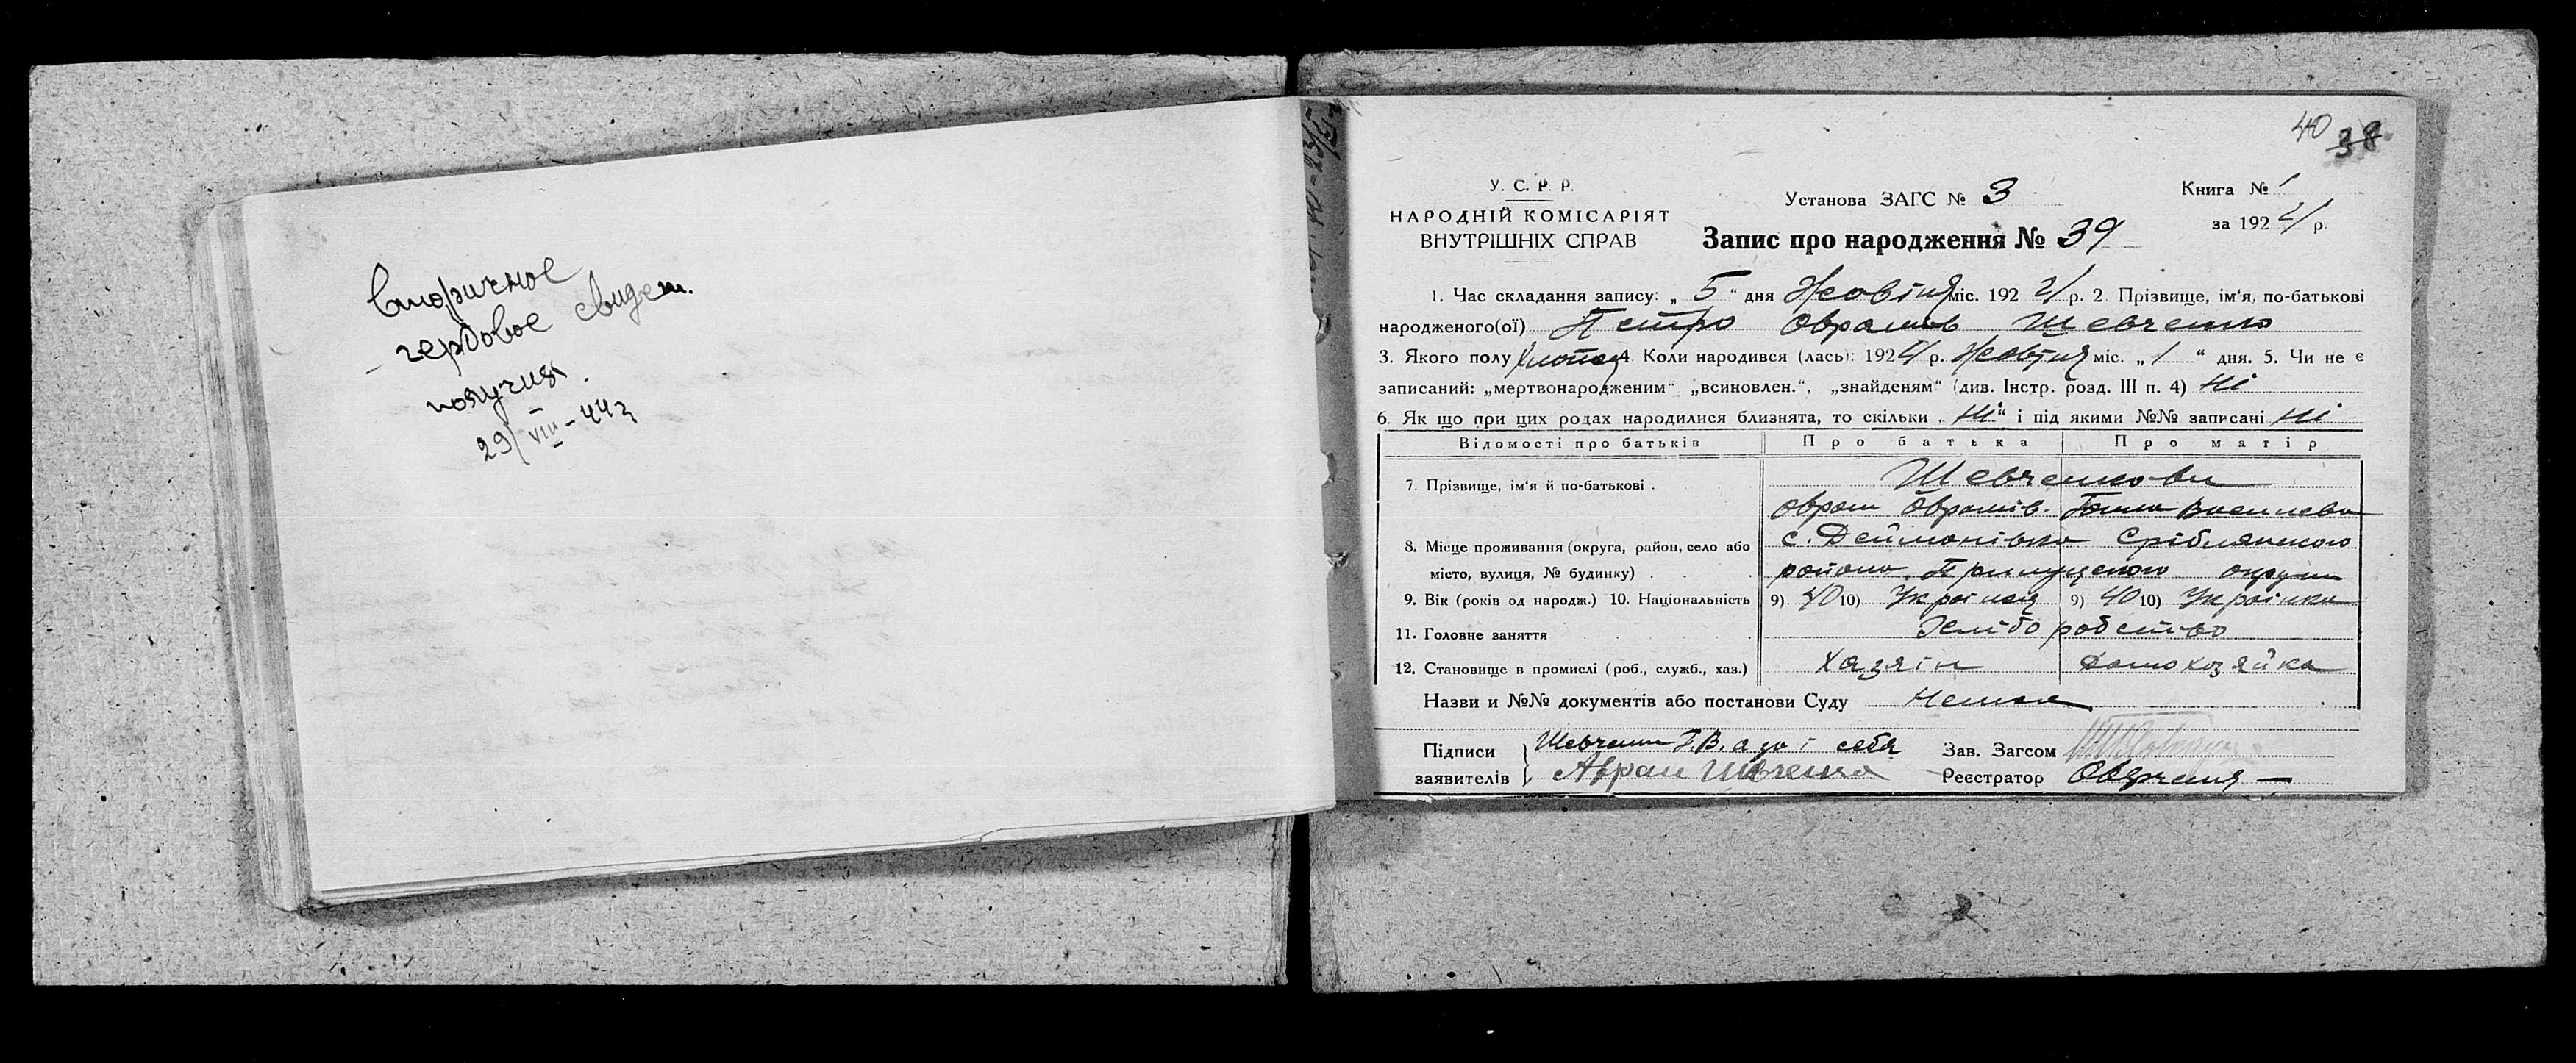 вторичное
гербовое свидет.
получил
29/VIII-44г
40 38
У. С. Р. Р.
НАРОДНІЙ КОМІСАРІЯТ
ВНУТРІШНІХ СПРАВ
Установа ЗАГС № 3
Запис про народження № 39
Книга № 1
за 1924 р.
1. Час складання запису: „ 5 “ дня Жовтня міс. 1924 р. 2 Прізвище, ім'я, по-батькові
народженого(ої) Петро Оврамів Шевченко
3. Якого полу Хлопец 4. Коли народився (лась): 1924 р. Жовтня міс. „ 1 “ дня. 5. Чи не є
записаний: „мертвонародженим“ „всиновлен.“, „знайденям“ (див. Інстр. розд. III п. 4) Ні
6. Як що при цих родах народилися близнята, то скільки „ Ні “ і під якими №№ записані Ні
Відомості про батьків Про батька Про матір
7. Прізвище, ім'я й по-батькові . Шевченкови
Оврам Оврамів. Ганна Василева
8. Місце проживання (округа, район, село або с. Дейманівка Сріблянського
місто, вулиця, № будинку) . . района, Прилуцької округи
9. Вік (років од народж.) 10. Національність 9) 40 10) Українец 9) 40 10) Українка
11. Головне заняття . . Хлібо робство
12. Становище в промислі (роб., служб., хаз.) Хазяін Домохозяйка
Назви и №№ документів або постанови Суду Немає
Підписи Шевченко Г.В. а за ї себя Зав. Загсом
заявителів Аврам Шевченко Реєстратор